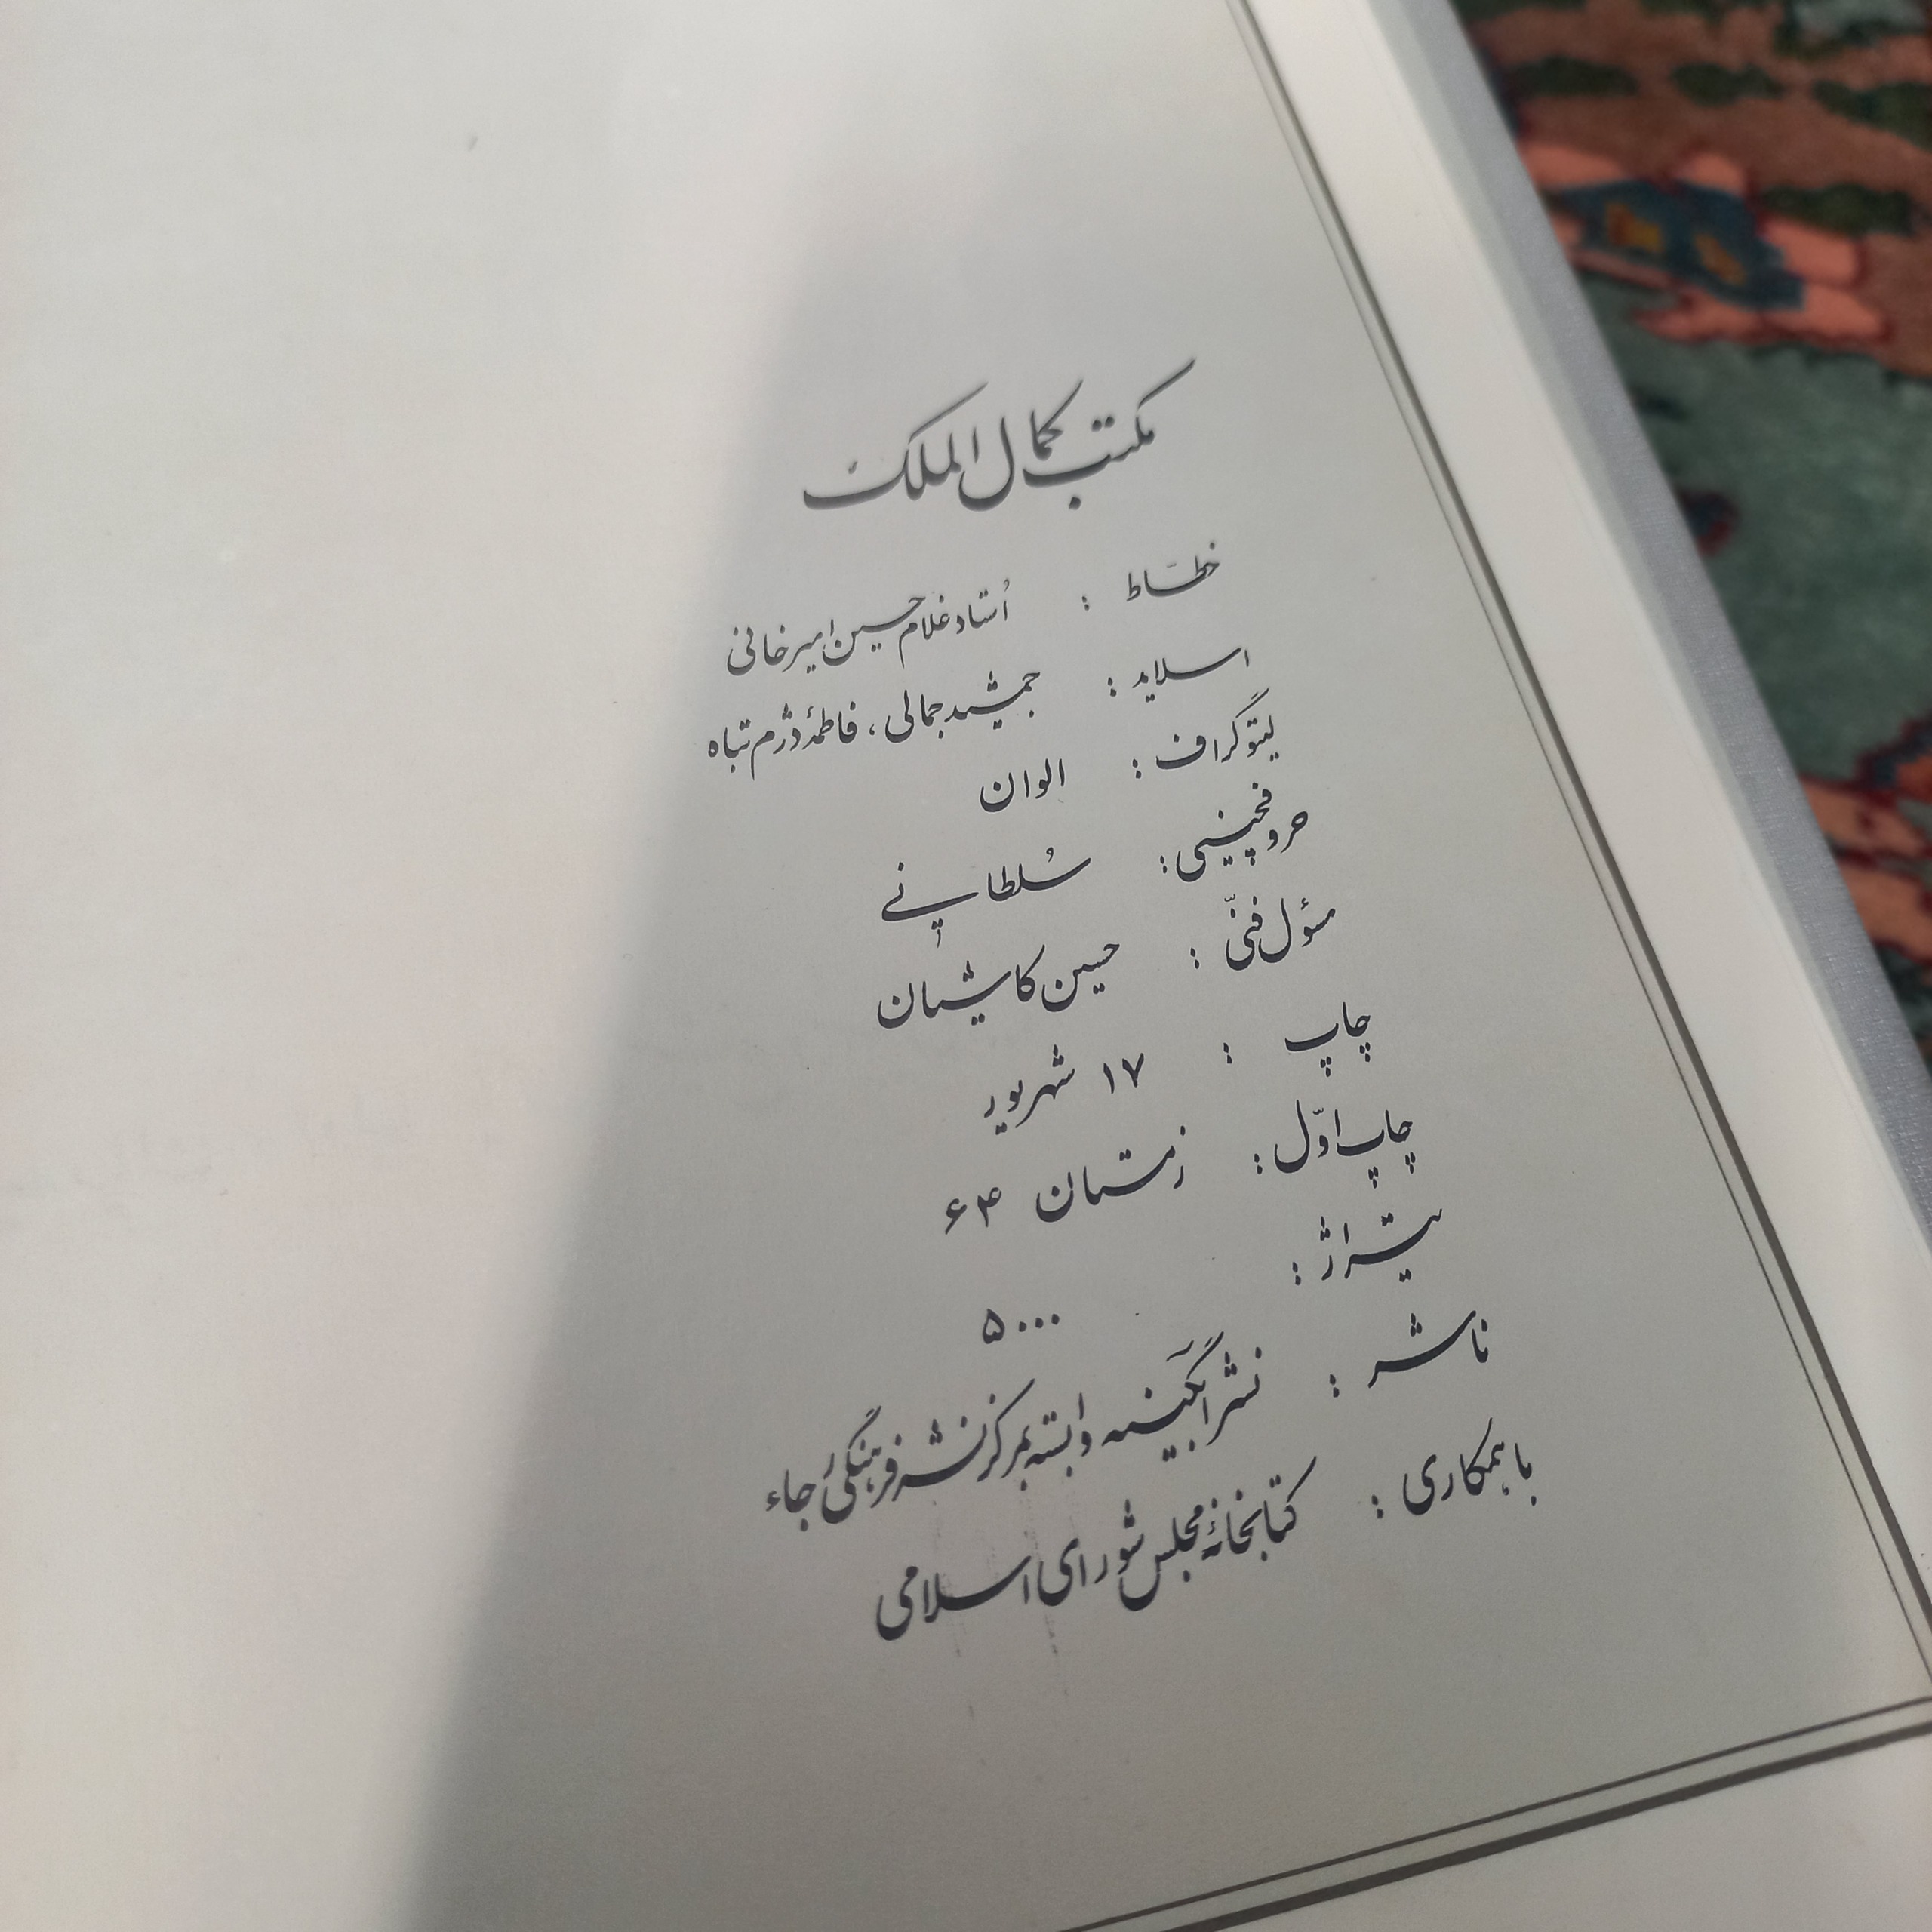 مکتب کمال الملک
خطّاط : اُستاد غلامحسین امیرخانی
اسلاید : جمشید جمالی ، فاطمهٔ دژم تباه
لیتوگراف : الوان
حروفچینی : سُلطانی
مسؤل فنّی : حسین کاشیان
چاپ : ۱۷ شهریور
چاپ اوّل : زمستان ۶۴
تیراژ : ۵۰۰۰
ناشر : نشر آبگینه وابسته بمرکز نشر فرهنگی رجاء
با همکاری : کتابخانهٔ مجلس شورای اسلامی